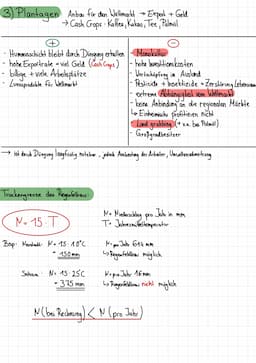 3) Plantagen Anbau für den Weltmarkt → Export + Geld
→ Cash Crops: Kaffee, Kakao, Tee, Palmöl
+
- Humusschicht bleibt durch Düngung erhalten
- hohe Exportrate → viel Geld (Cash Crops)
- billige + viele Arbeitsplätze
- für Weltmarkt
-
- Monokultur
- hohe Investitionskosten
- im Ausland
- Pestizide + Insektizide → Zerstörung
- extreme Abhängigkeit vom Weltmarkt
- keine Anbindung an die regionalen Märkte
↳ Einheimische profitieren nicht
- Land grabbing (v.a. bei Palmöl)
- Großgrundbesitzer
→ ist durch Düngung langfristig nutzbar, jedoch Ausbeutung der Arbeiter, Umweltverschmutzung
Trockengrenze des Regenfeldbaus:
N = 15 · T
N = Niederschlag pro Jahr in mm
T = Jahresmitteltemperatur
Bsp.: N = 15 · 10°C
= 150 mm
N pro Jahr mm
↳ Regenfeldbau möglich
N = 15 · 25°C
= 375 mm
N pro Jahr 16 mm
↳ Regenfeldbau nicht möglich
N (bei Rechnung) < N (pro Jahr)